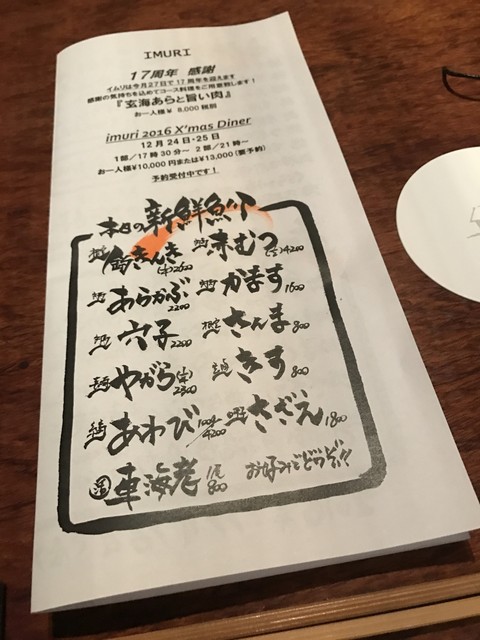 IMURI
17周年 感謝
イムリは今月27日で17周年を迎えます
感謝の気持ちを込めてコース料理をご用意致します！
『玄海あらと旨い肉』
お一人様¥ 8,000税別
imuri 2016 X'mas Diner
12月 24日・25日
1部／17時30分～ 2部／21時～
お一人様¥10,000円または¥13,000(要予約)
予約受付中です！
本日の新鮮魚介
きんき 2600 赤むつ 4200
あらかぶ 2200 かます 1600
穴子 2200 さんま 800
やがら 2300 きす 800
あわび 100g/4200 さざえ 1800
車海老 1尾 800 お好みでどうぞ!!